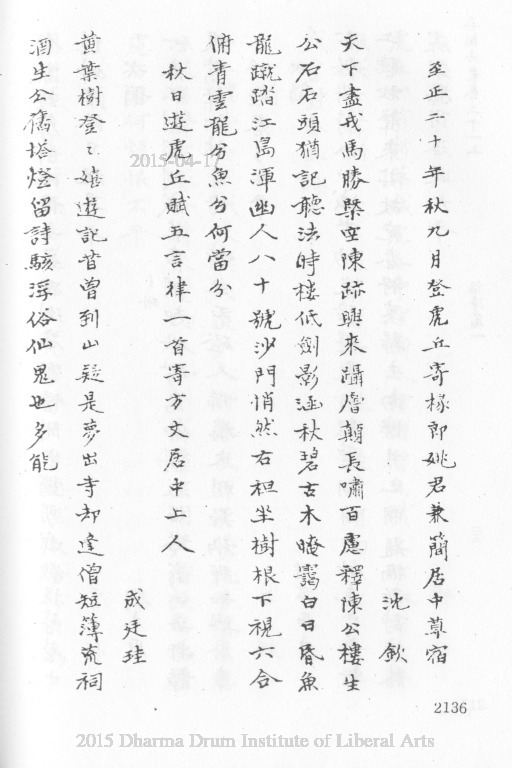 至正二十年秋九月登虎丘寄椽郎姚君兼蕑居中尊宿
沈欽
天下盡戎馬勝槩空陳跡興來躡層顛長嘯百慮釋陳公樓生
公石石頭猶記聽法時楼低劍影涵秋碧古木曉靄白日昏魚
龍蹴踏江島渾幽人八十號沙門悄然右袒坐樹根下視六合
俯青雲龍兮魚兮何當分
秋日遊虎丘賦五言律一首寄方文居中上人
成廷珪
黄葉樹登〻嬉遊記昔曾到山疑是夢出寺却逢僧短薄荒祠
酒生公舊塔燈留詩駭浮俗仙鬼也多能
2136
2015-04-17
2015 Dharma Drum Institute of Liberal Arts